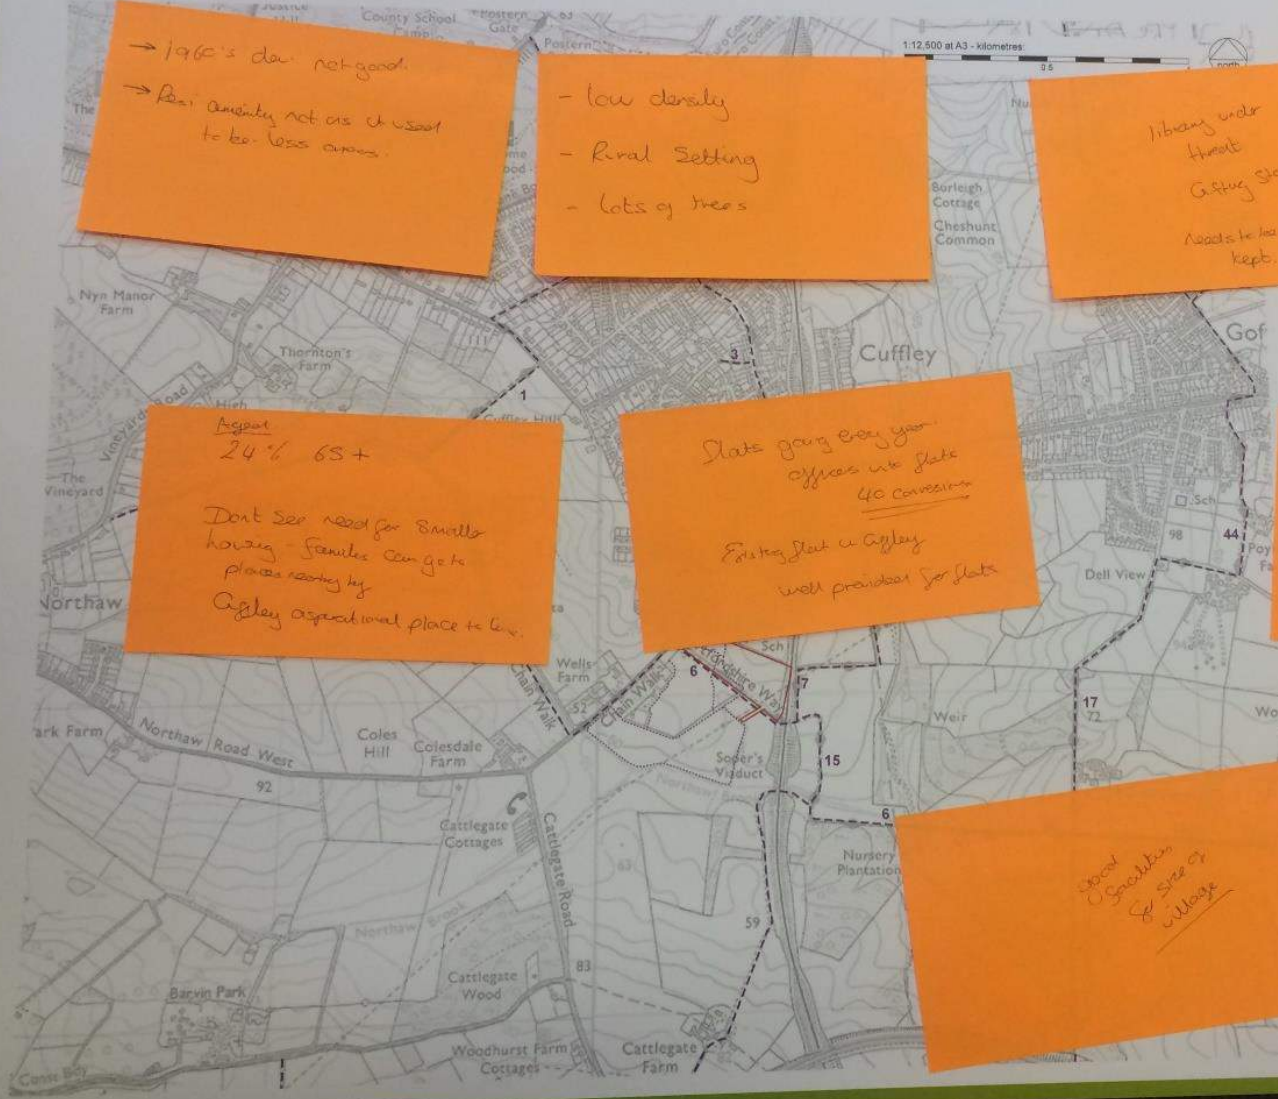 County School
Postern
Gate
63
Postern
1:12,500 at A3 - kilometres
0.5
north
→ 1960's dev. not good.
→ Resi amenity not as it used
to be. less areas.
- low density
- Rural Setting
- lots of trees
library under
threat
Needs to be
kept.
Burleigh
Cottage
Cheshunt
Common
Nyn Manor
Farm
Thornton's
Farm
Vineyards Road
High
The
Vineyard
1
3
Cuffley
Cuffley Hills
Gof
Aged
24% 65+
Dont See need for Smaller
housing - families can go to
places nearby
Cuffley aspirational place to live.
Flats going every year.
offices into flats
40 conversions
Existing flat in Cuffley
well provided for flats
Sch
98
44
Dell View
Northaw
Wells
Farm
52
Chain Walk
Chain Walk
6
Sch
7
17
72
Weir
ark Farm
Northaw Road West
Coles
Hill
Colesdale
Farm
92
Soper's
Viaduct
15
6
Cattlegate
Cottages
Cattlegate Road
63
Nursery
Plantation
good
facilities
for size of
village
Northaw Brook
59
83
Cattlegate
Wood
Barvin Park
Woodhurst Farm
Cottages
Cattlegate
Farm